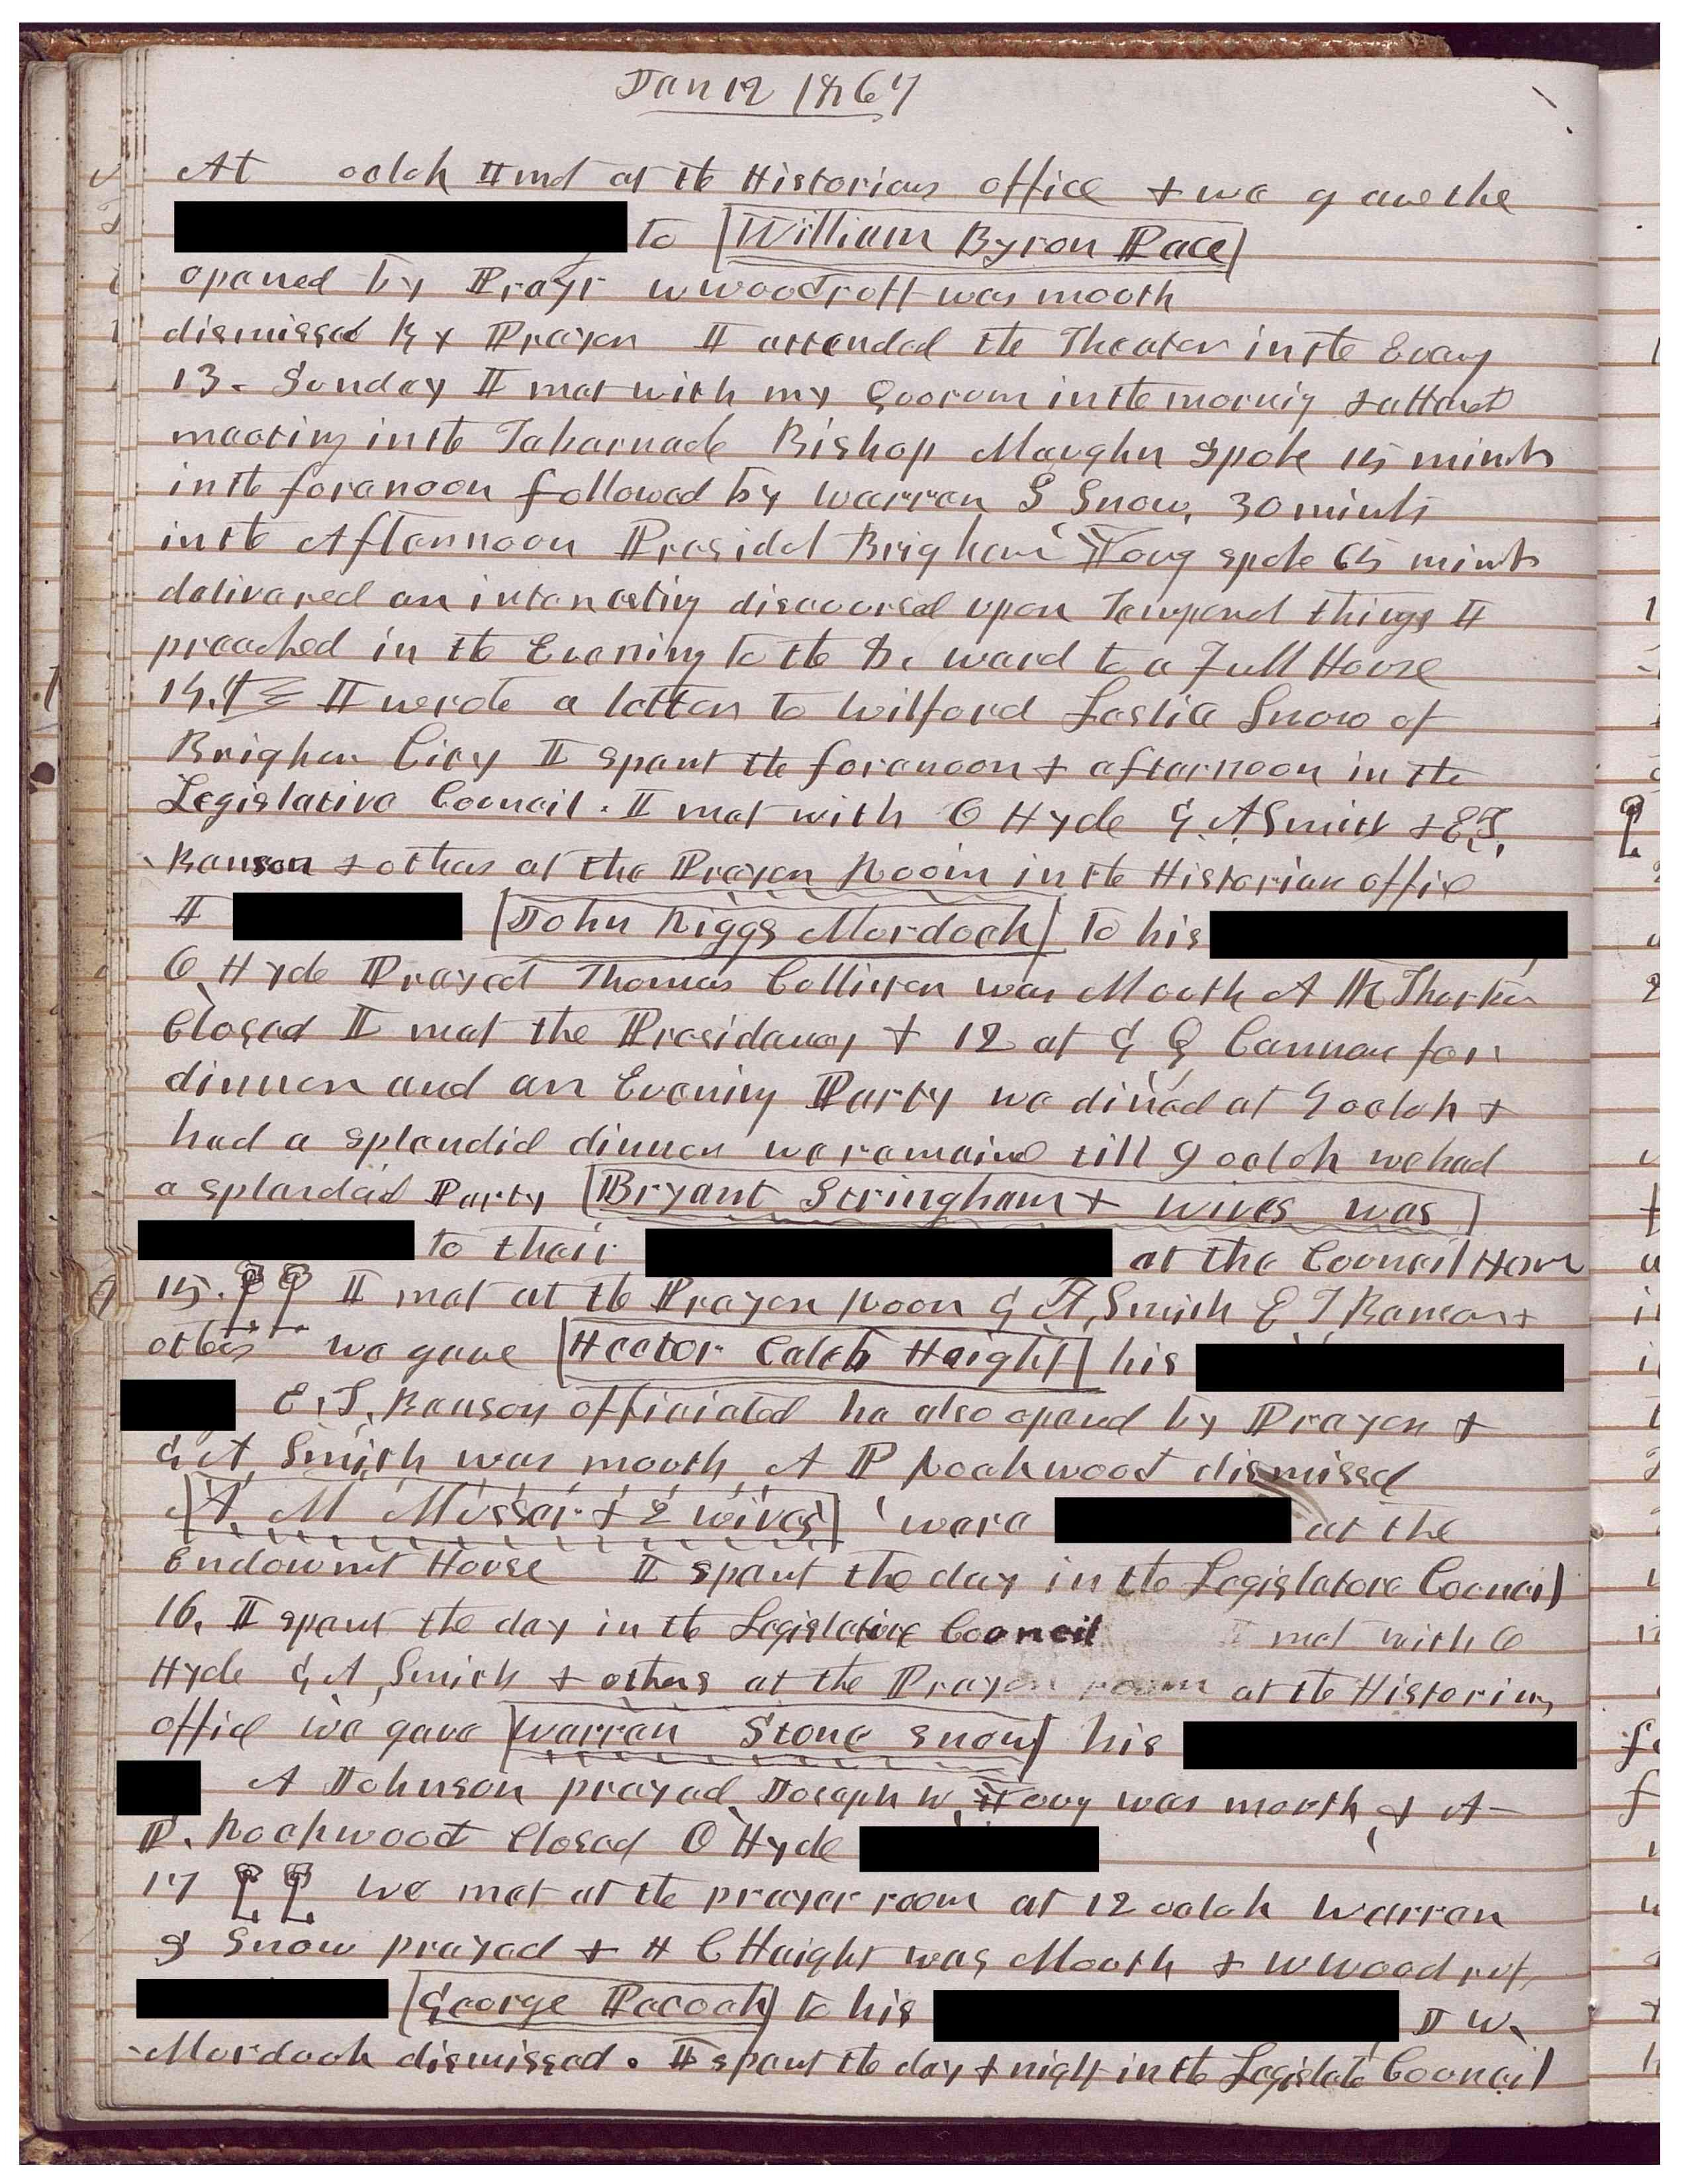 Jan 12 1867
At oclok I met at the Historians office & we gave the
to William Byron Pace
opened by Prayr W Woodruff was mouth
dismissed by Prayer I attended the Theater in the Eveng
13. Sunday I met with my Quorum in the mornig & attend
meeting in the Tabernacle Bishop Maughn spoke 15 minuts
in the forenoon followed by Warren S Snow, 30 minuts
in the Afternnoon Presidet Brigham Young spoke 65 minuts
delivered an interesting discoursed upon Temporal things I
preached in the Evening to the 8. ward to a Full House
14. I wrote a letter to Wilford Leslie Snow of
Brigham City I spent the forenoon & afternoon in the
Legislative Council. I met with O Hyde G. A Smith & E. T.
Benson & others at the Prayer Room in the Historian office
I John Riggs Murdock to his
O. Hyde Prayed Thomas Callister was Mouth A M Thurber
Closed I met the Presidency & 12 at G Q Cannon for
dinner and an Evening Party we dined at 4 oclok &
had a splendid dinner we remained till 9 oclok we had
a splendid Party Bryant Stringham & wives was
to their at the Council House
15. I met at the Prayer Room G. A, Smith E T, Benson &
others we gave Hector Caleb Haight his
E. T. Benson officiated he also opened by Prayer &
G. A, Smith was mouth A P Rockwood dismissed
A. M Musser & 2 wives were at the
Endowmt House I spent the day in the Legislature Council
16. I spent the day in the Legislative Council I met with O
Hyde G. A, Smith & others at the Prayer room at the Historians
office we gave Warren Stone Snow his
A Johnson prayed Joseph W. Young was mouth & A
P. Rockwood Closed O Hyde
17 We met at the prayer room at 12 oclok Warren
S Snow prayed & H C Haight was Mouth & W Woodruf
George Pacock to his J W.
Murdock dismissed. I spent the day & night in the Legislate Council